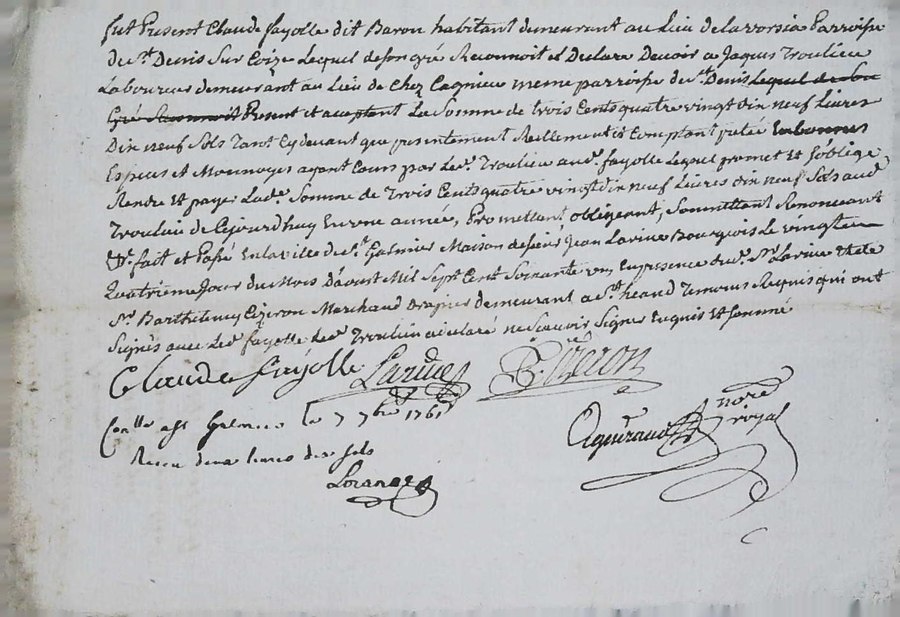 fut Present Claude fayolle dit Baron habitant demeurant au Lieu de lavorsia Parroisse
de St. Denis Sur Coize Lequel de son gré Reconnoit et Declare Devoir a Jaques Troulieu
Laboureur demeurant au Lieu de Chez Cagnieu meme parroisse de St. Denis Lequel de son
Gré Reconnoit Present et acceptant La Somme de trois Cents quatre vingt dix neuf Livres
Dix neuf Sols Tant Cy devant que presentement Reellement et Comptant pretée En bonnes
Especes et Monnoyes ayant Cours par Led. Troulieu aud. fayolle Lequel promet et s'oblige
Rendre et payer Lade. Somme de Trois Cents quatre vingt dix neuf Livres dix neuf Sols aud
Troulieu de Cejourdhuy En une année, Promettant obligeant, Soumettant Renonceant
&c. fait et Passé En la ville de St. Galmier Maison de Sieur Jean Lavine Bourgeois Le vingt
Quatrieme Jour du Mois D'aoust Mil Sept Cent Soixante un En presence dud. Sr. Lavine et de
Sr. Barthelemy Cizeron Marchand Drapier demeurant a St. heand Temoins Requis qui ont
Signés avec Led. fayolle Led. Troulieu a declaré ne Scavoir Signer Enquis et Sommé
Claude Fayolle Lavine B. Cizeron
Conlle a St Galmier le 7 7bre 1761
nore
royal
Receu deux livres dix sols